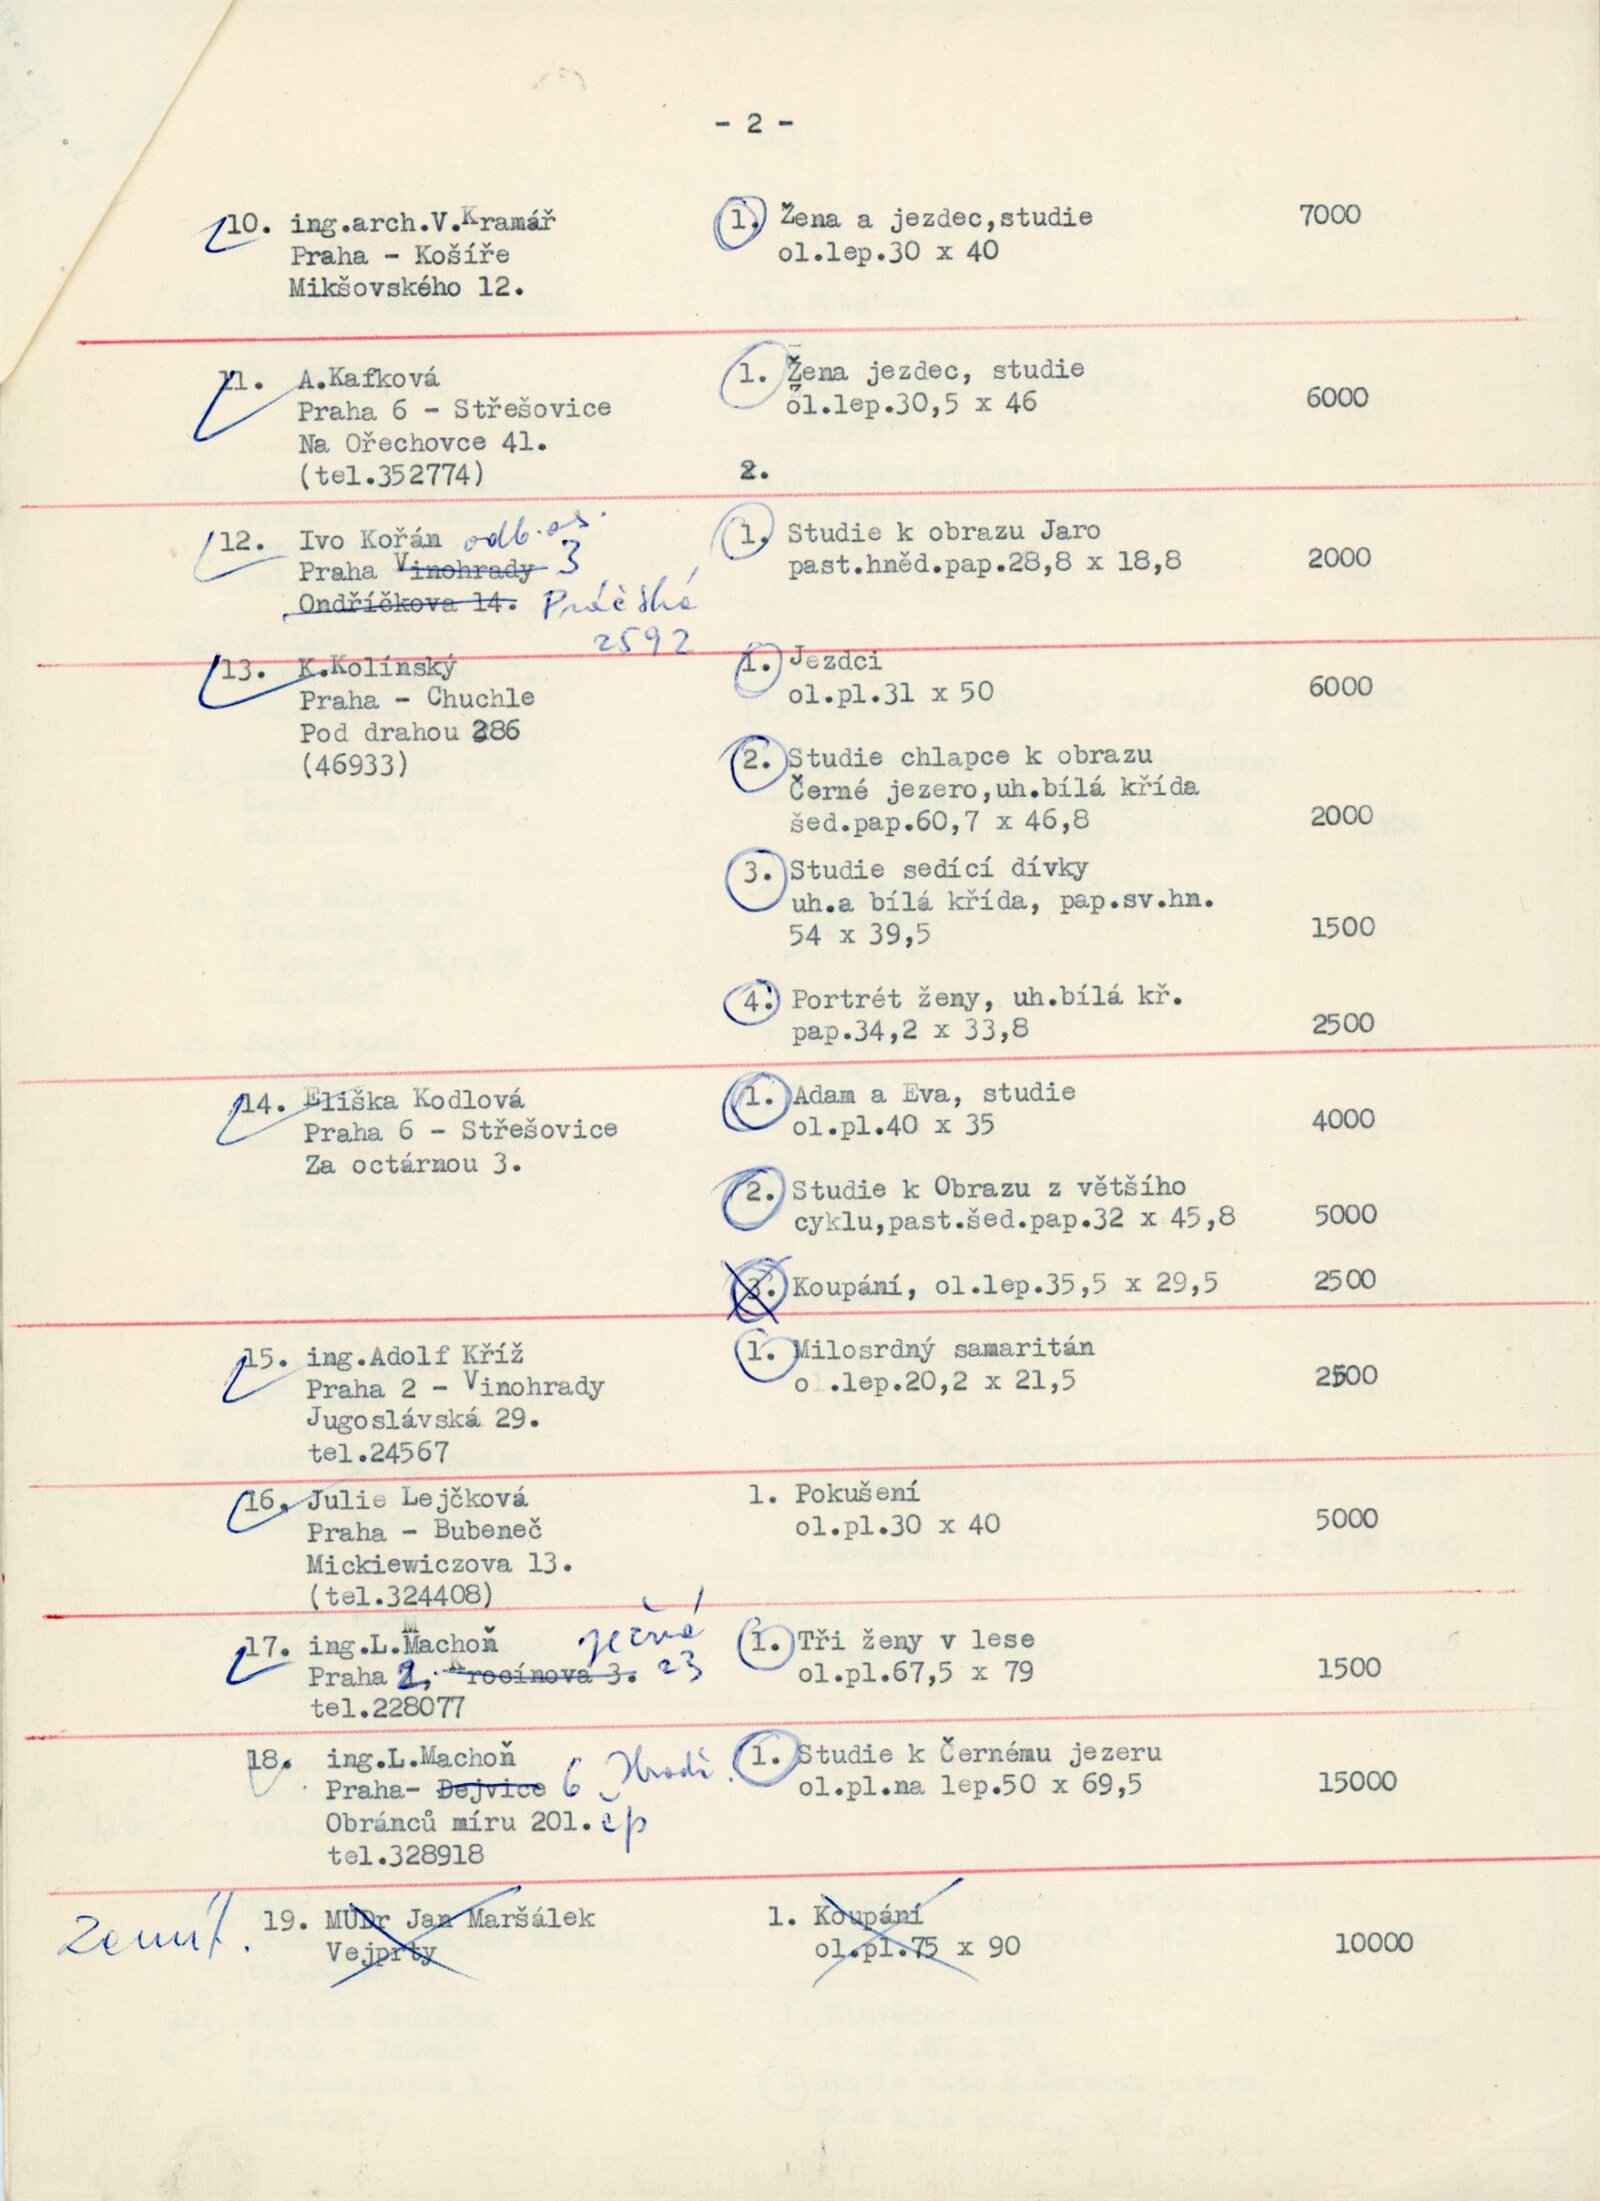 - 2 -
10. ing.arch.V.Kramář
Praha - Košíře
Mikšovského 12.
1. Žena a jezdec,studie
ol.lep.30 x 40
7000
11. A.Kafková
Praha 6 - Střešovice
Na Ořechovce 41.
(tel.352774)
1. Žena jezdec, studie
ol.lep.30,5 x 46
6000
2.
12. Ivo Kořán odb.os.
Praha Vinohrady 3
Ondříčkova 14. Práčská
2592
1. Studie k obrazu Jaro
past.hněd.pap.28,8 x 18,8
2000
13. K.Kolínský
Praha - Chuchle
Pod drahou 286
(46933)
1. Jezdci
ol.pl.31 x 50
6000
2. Studie chlapce k obrazu
Černé jezero,uh.bílá křída
šed.pap.60,7 x 46,8
2000
3. Studie sedící dívky
uh.a bílá křída, pap.sv.hn.
54 x 39,5
1500
4. Portrét ženy, uh.bílá kř.
pap.34,2 x 33,8
2500
14. Eliška Kodlová
Praha 6 - Střešovice
Za octárnou 3.
1. Adam a Eva, studie
ol.pl.40 x 35
4000
2. Studie k Obrazu z většího
cyklu,past.šed.pap.32 x 45,8
5000
3. Koupání, ol.lep.35,5 x 29,5
2500
15. ing.Adolf Kříž
Praha 2 - Vinohrady
Jugoslávská 29.
tel.24567
1. Milosrdný samaritán
ol.lep.20,2 x 21,5
2500
16. Julie Lejčková
Praha - Bubeneč
Mickiewiczova 13.
(tel.324408)
1. Pokušení
ol.pl.30 x 40
5000
17. ing.L.Machoň Ječná
Praha 2, Krocínova 3. 23
tel.228077
1. Tři ženy v lese
ol.pl.67,5 x 79
1500
18. ing.L.Machoň
Praha- Dejvice 6 Hradč.
Obránců míru 201. čp
tel.328918
1. Studie k Černému jezeru
ol.pl.na lep.50 x 69,5
15000
Zemř.
19. MUDr Jan Maršálek
Vejprty
1. Koupání
ol.pl.75 x 90
10000